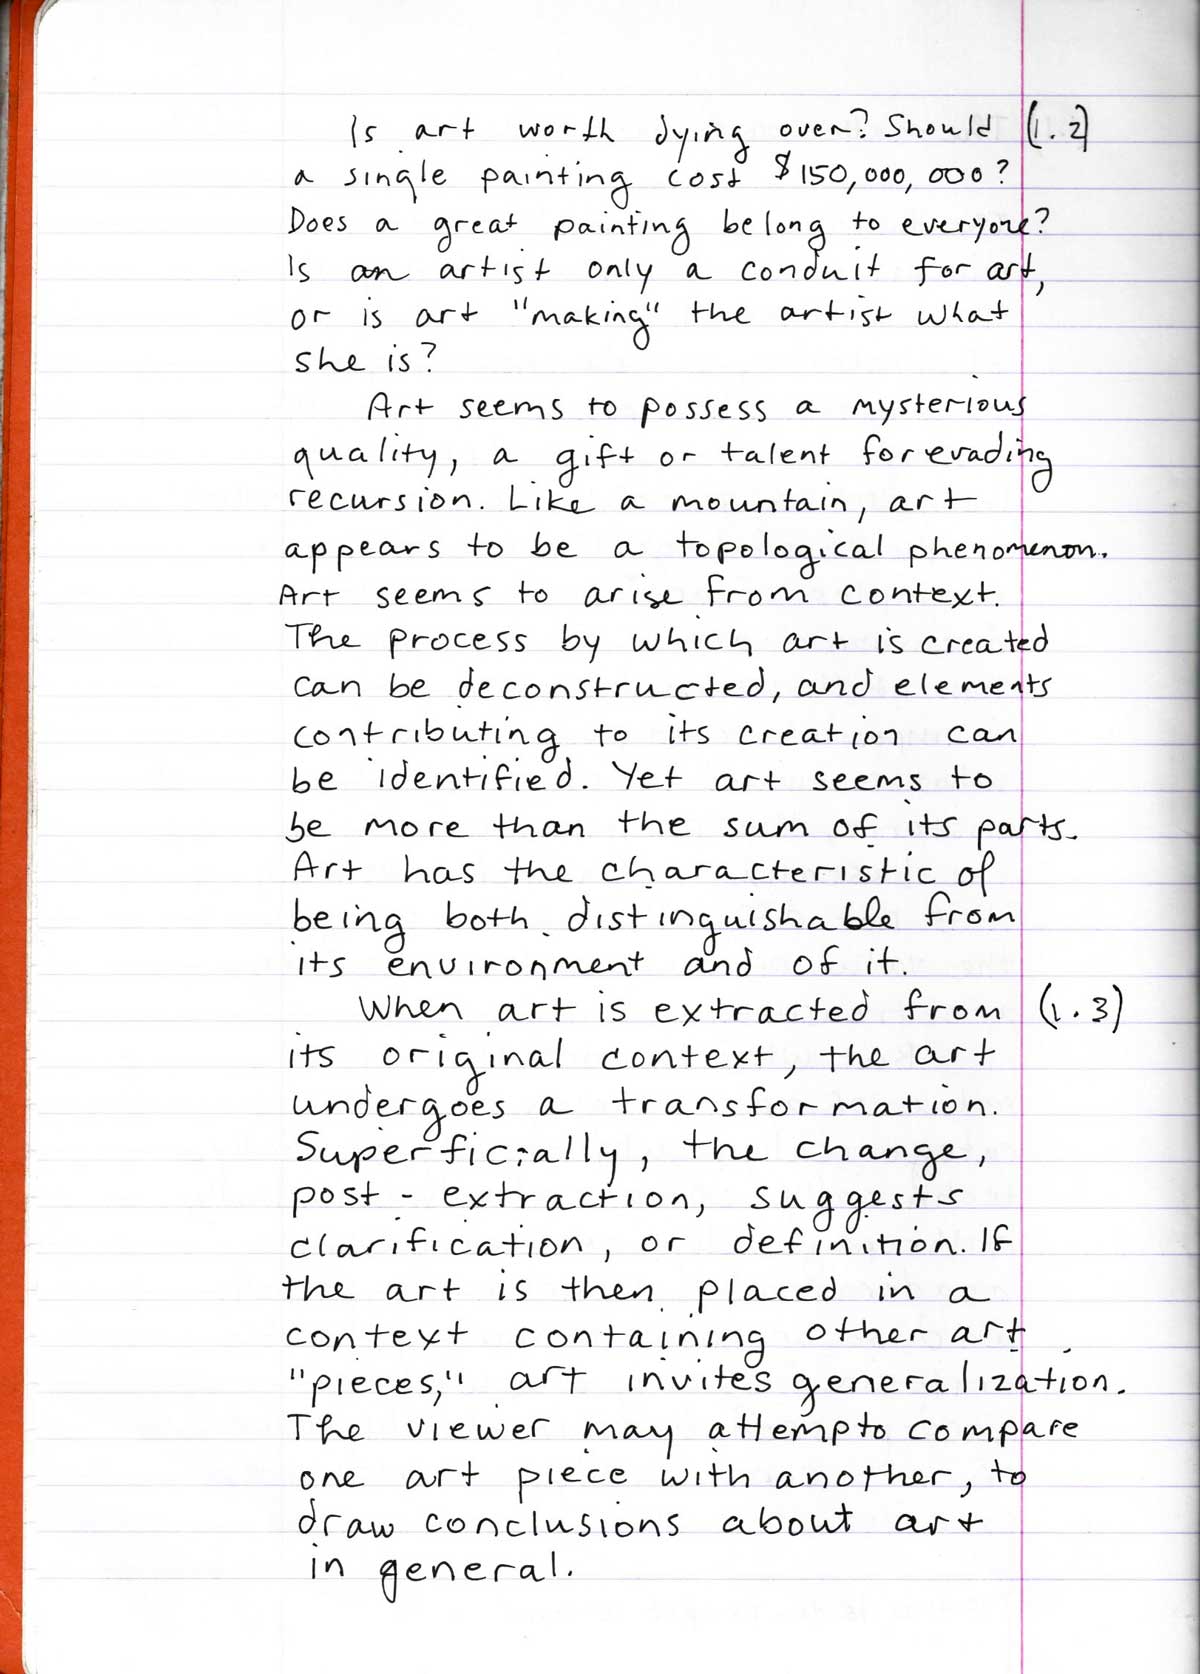 Is art worth dying over? Should (1.2)
a single painting cost $150,000,000?
Does a great painting belong to everyone?
Is an artist only a conduit for art,
or is art "making" the artist what
she is?
Art seems to possess a mysterious
quality, a gift or talent for evading
recursion. Like a mountain, art
appears to be a topological phenomenon.
Art seems to arise from context.
The process by which art is created
can be deconstructed, and elements
contributing to its creation can
be identified. Yet art seems to
be more than the sum of its parts.
Art has the characteristic of
being both distinguishable from
its environment and of it.
When art is extracted from (1.3)
its original context, the art
undergoes a transformation.
Superficially, the change,
post-extraction, suggests
clarification, or definition. If
the art is then placed in a
context containing other art
"pieces," art invites generalization.
The viewer may attemp to compare
one art piece with another, to
draw conclusions about art
in general.